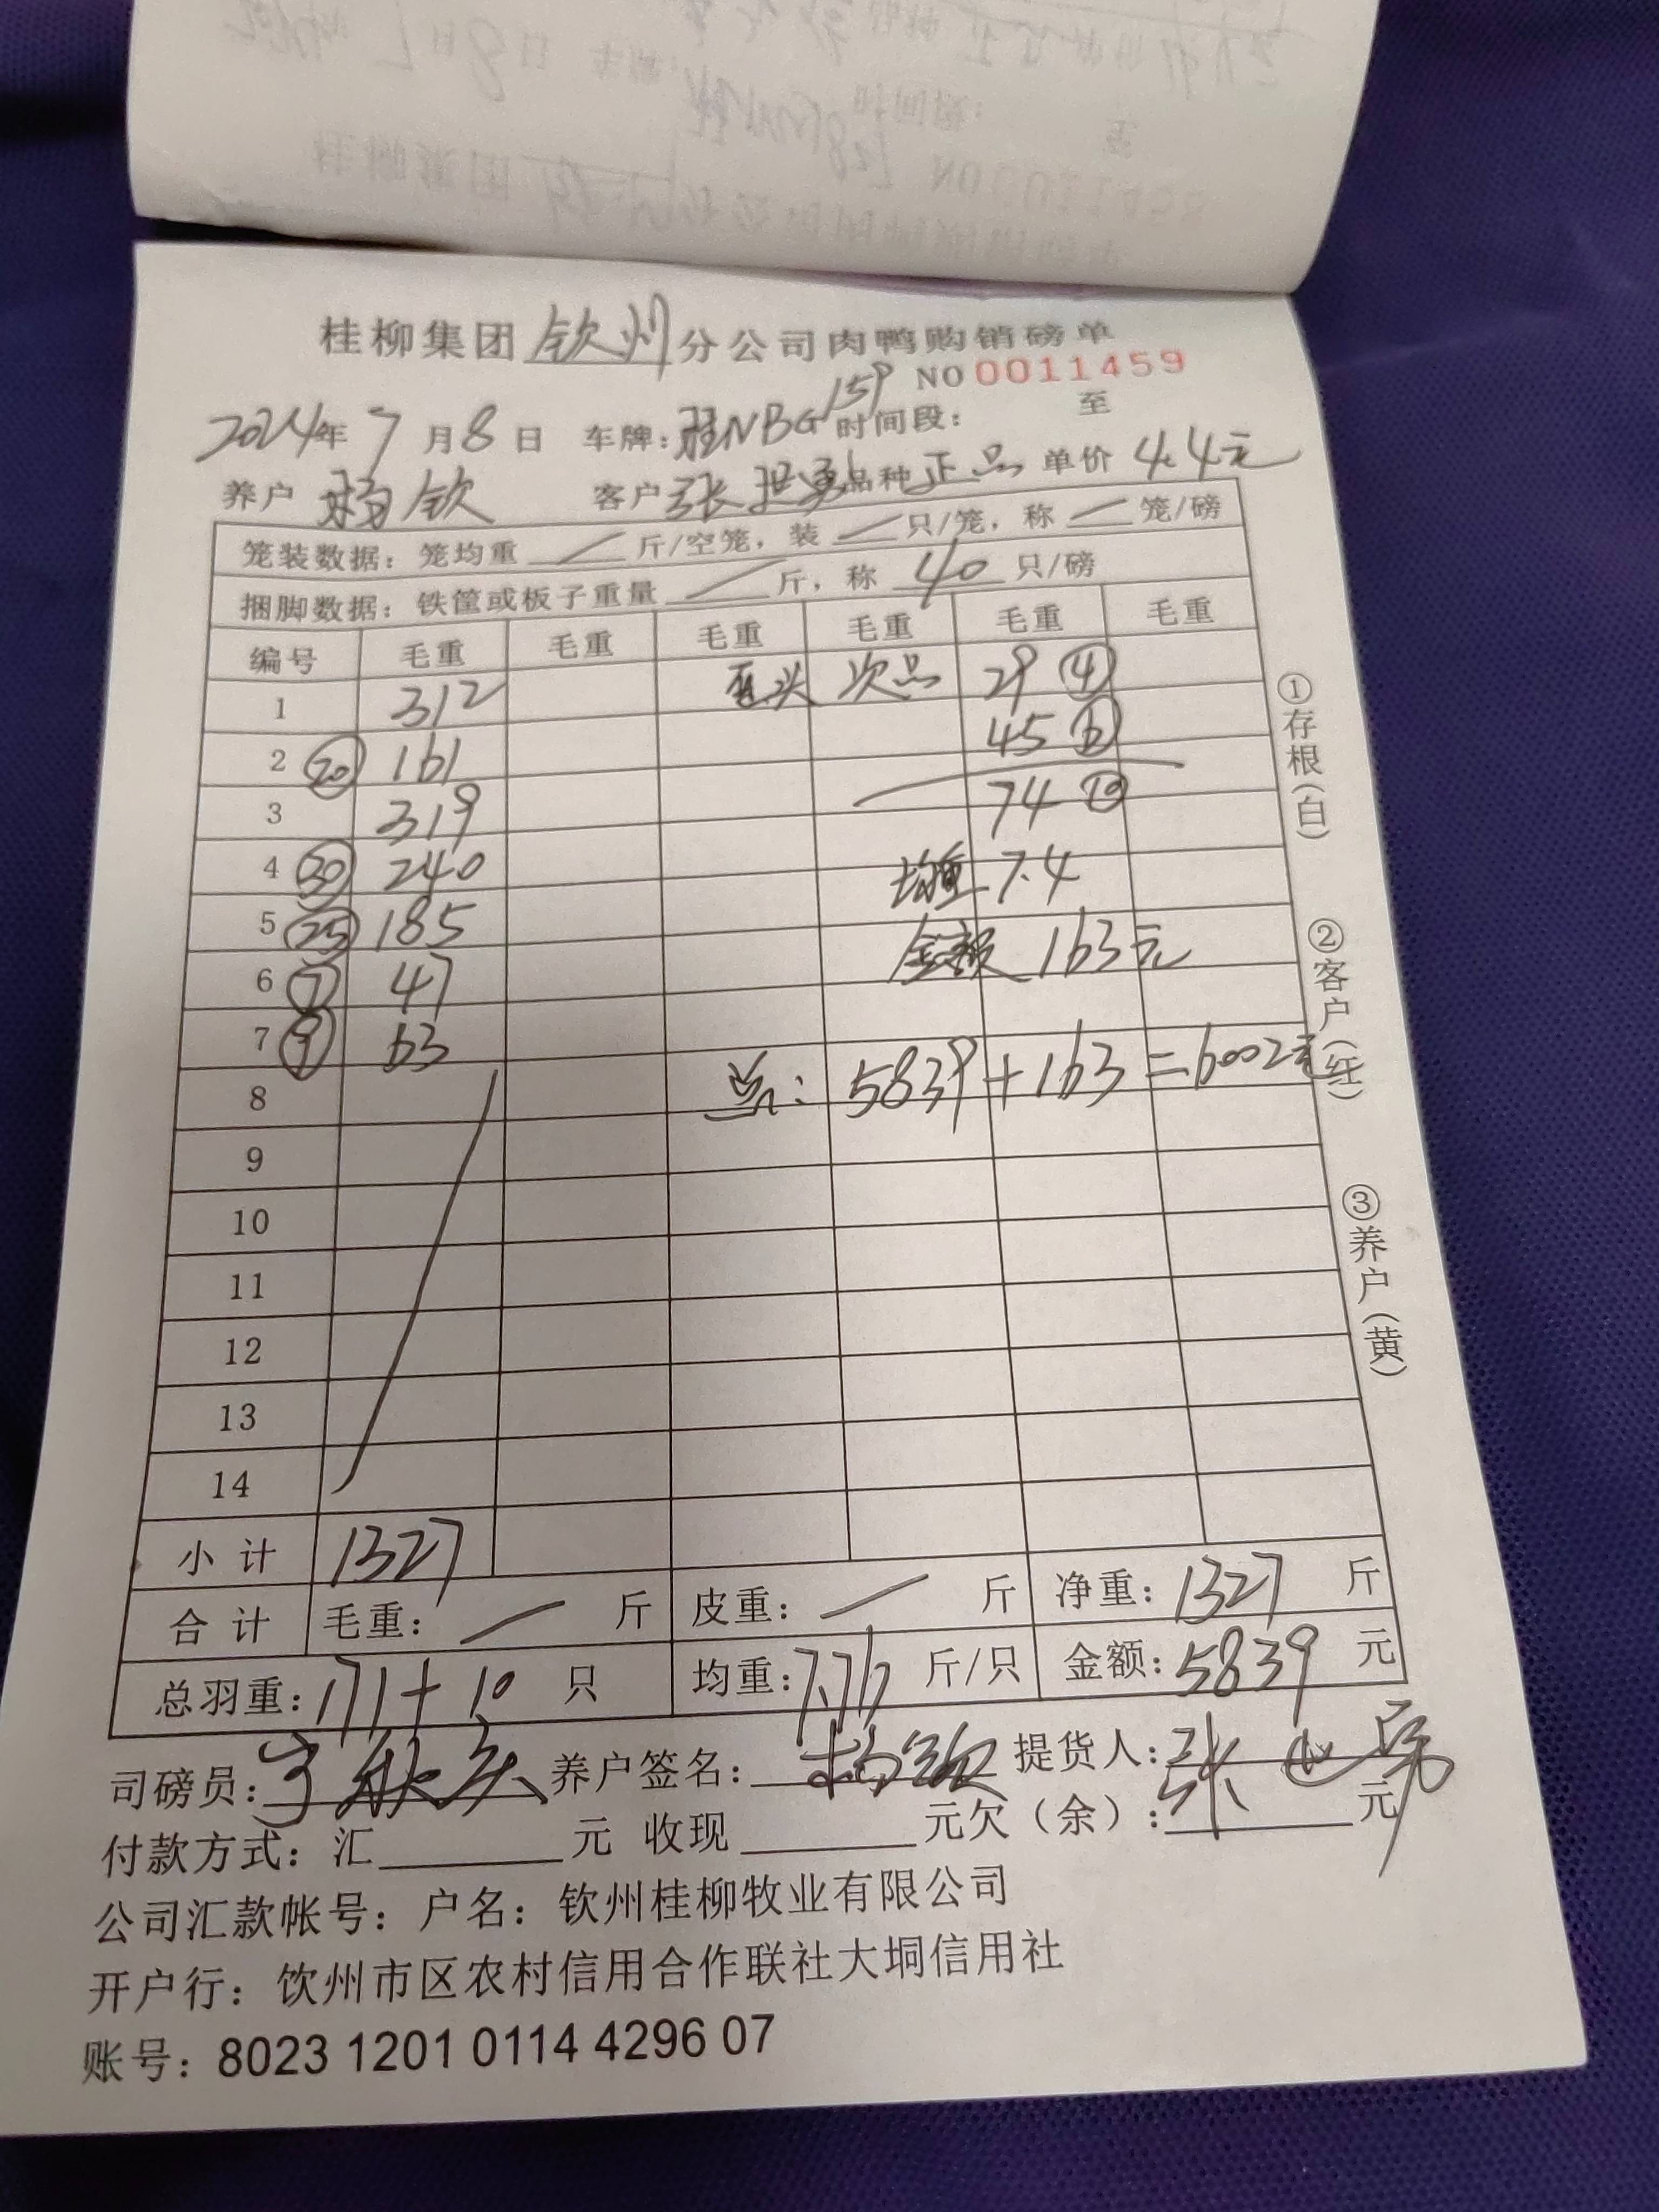 桂柳集团 钦州 分公司肉鸭购销磅单
NO 0011459
2024年 7 月 8 日 车牌：桂NBG159 时间段： 至
养户 杨钦 客户 张 品种 正品 单价 4.4元
笼装数据：笼均重 / 斤/空笼，装 / 只/笼，称 / 笼/磅
捆脚数据：铁筐或板子重量 / 斤，称 40 只/磅
编号 毛重 毛重 毛重 毛重 毛重 毛重
1 312 次品 29 ④
2 ⑳ 161 45 ⑥
3 319 74 ⑩
4 ㉚ 240 均重 7.4
5 ㉕ 185 金额 163元
6 ⑦ 47
7 ⑨ 63 总：5839+163=6002元
8
9
10
11
12
13
14
小计 1327
合计 毛重： / 斤 皮重： / 斤 净重：1327 斤
总羽重：171+10 只 均重：7.76 斤/只 金额：5839 元
司磅员： 养户签名：杨钦 提货人：张
付款方式：汇 元 收现 元欠（余）： 元
公司汇款帐号：户名：钦州桂柳牧业有限公司
开户行：饮州市区农村信用合作联社大垌信用社
账号：8023 1201 0114 4296 07
①存根（白）
②客户（红）
③养户（黄）